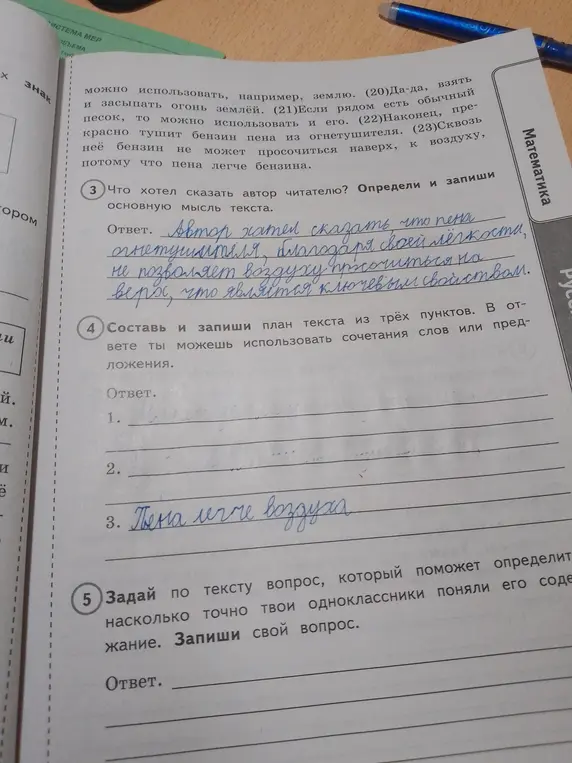 СИСТЕМА МЕР
знак
х
можно использовать, например, землю. (20)Да-да, взять
и засыпать огонь землёй. (21)Если рядом есть обычный
песок, то можно использовать и его. (22)Наконец, пре-
красно тушит бензин пена из огнетушителя. (23)Сквозь
неё бензин не может просочиться наверх, к воздуху,
потому что пена легче бензина.
Математика
тором
3 Что хотел сказать автор читателю? Определи и запиши
основную мысль текста.
Ответ. Автор хотел сказать, что пена
огнетушителя, благодаря своей лёгкости,
не позволяет воздуху просочиться на
верх, что является ключевым свойством.
Руса
4 Составь и запиши план текста из трёх пунктов. В от-
вете ты можешь использовать сочетания слов или пред-
ложения.
и
Ответ.
й.
1.
м.
2.
и
ё
3. Пена легче воздуха
5 Задай по тексту вопрос, который поможет определит
насколько точно твои одноклассники поняли его соде
жание. Запиши свой вопрос.
Ответ.